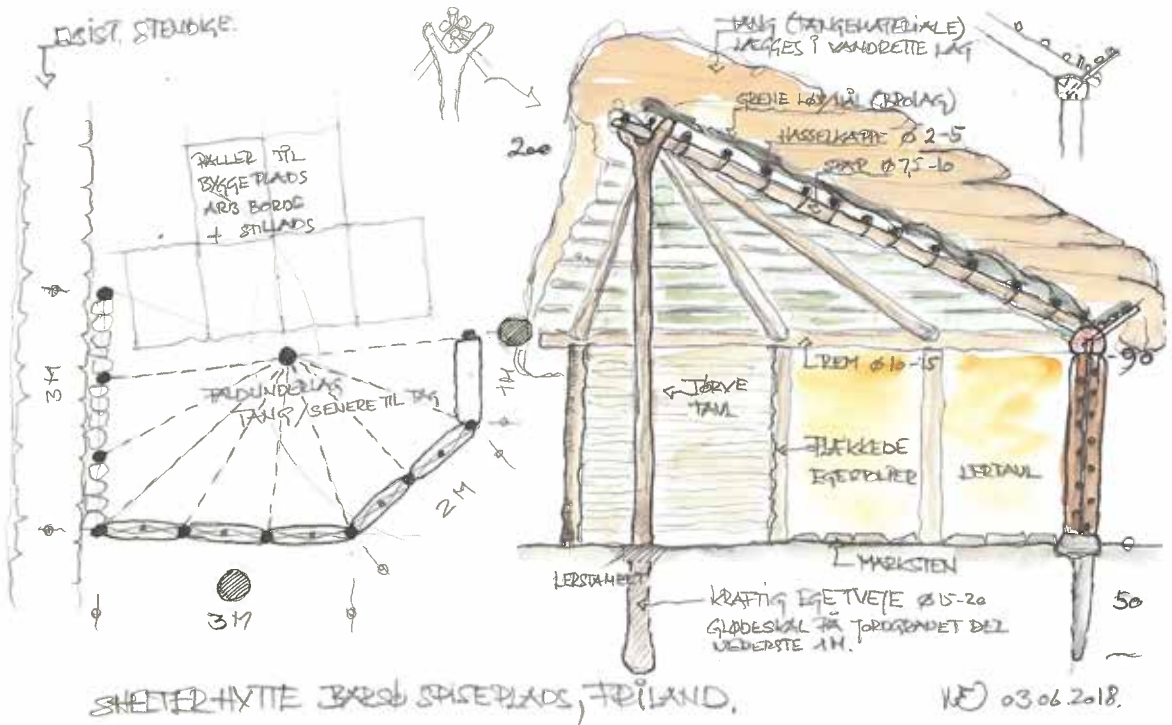 EKSIST. STENDIGE.
PALLER TIL
BYGGEPLADS
ARB BORDE
+ STILLADS
3M
TANG / SENERE TIL TAG
1M
2M
3M
TANG (TANGEMATERIALE)
LÆGGES I VANDRETTE LAG
GRENE LØV/NÅL (BROLAG)
HASSELKÆPPE Ø 2-5
SPÆR Ø 7,5-10
200
REM Ø 10-15
-90
TØRVE
TAVL
FLÆKKEDE
EGESTOLPER
LERTAVL
LERSTAMPET
MARKSTEN
0
50
KRAFTIG EGETVEJE Ø 15-20
GLØDESKAL PÅ JORDGRAVET DEL
NEDERSTE 1M.
SHELTERHYTTE BARSØ SPISEPLADS, FRILAND.
03.06.2018.